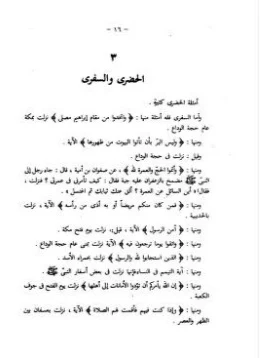 - ١٦ -
٣
الحضرى والسفرى
أمثلة الحضرى كثيرة .
وأما السفرى فله أمثلة منها : ﴿ واتخذوا من مقام إبراهيم مصلى ﴾ نزلت بمكة
عام حجة الوداع .
ومنها : ﴿ وليس البر بأن تأتوا البيوت من ظهورها ﴾ الآية .
وقيل : نزلت فى حجة الوداع .
ومنها : ﴿ وأتموا الحج والعمرة لله ﴾ ، عن صفوان بن أمية ، قال : جاء رجل إلى
النبى ﷺ متضمخ بالزعفران عليه جبة فقال : كيف تأمرنى فى عمرتى ؟ فنزلت ،
فقال : أين السائل عن العمرة ؟ ألق عنك ثيابك ثم اغتسل » .
ومنها : ﴿ فمن كان منكم مريضاً أو به أذى من رأسه ﴾ الآية ، نزلت
بالحديبية .
ومنها : ﴿ آمن الرسول ﴾ الآية ، قيل، نزلت يوم فتح مكة .
ومنها : ﴿ واتقوا يوما ترجعون فيه ﴾ الآية نزلت بمنى عام حجة الوداع .
ومنها : ﴿ الذين استجابوا لله والرسول ﴾ نزلت بحمراء الأسد .
ومنها : آية التيمم فى النساء نزلت فى بعض أسفار النبى ﷺ
ومنها : ﴿ إن الله يأمركم أن تؤدوا الأمانات إلى أهلها ﴾ نزلت يوم الفتح فى جوف
الكعبة .
ومنها : ﴿ وإذا كنت فيهم فأقمت لهم الصلاة ﴾ الآية ، نزلت بعسفان بين
الظهر والعصر .